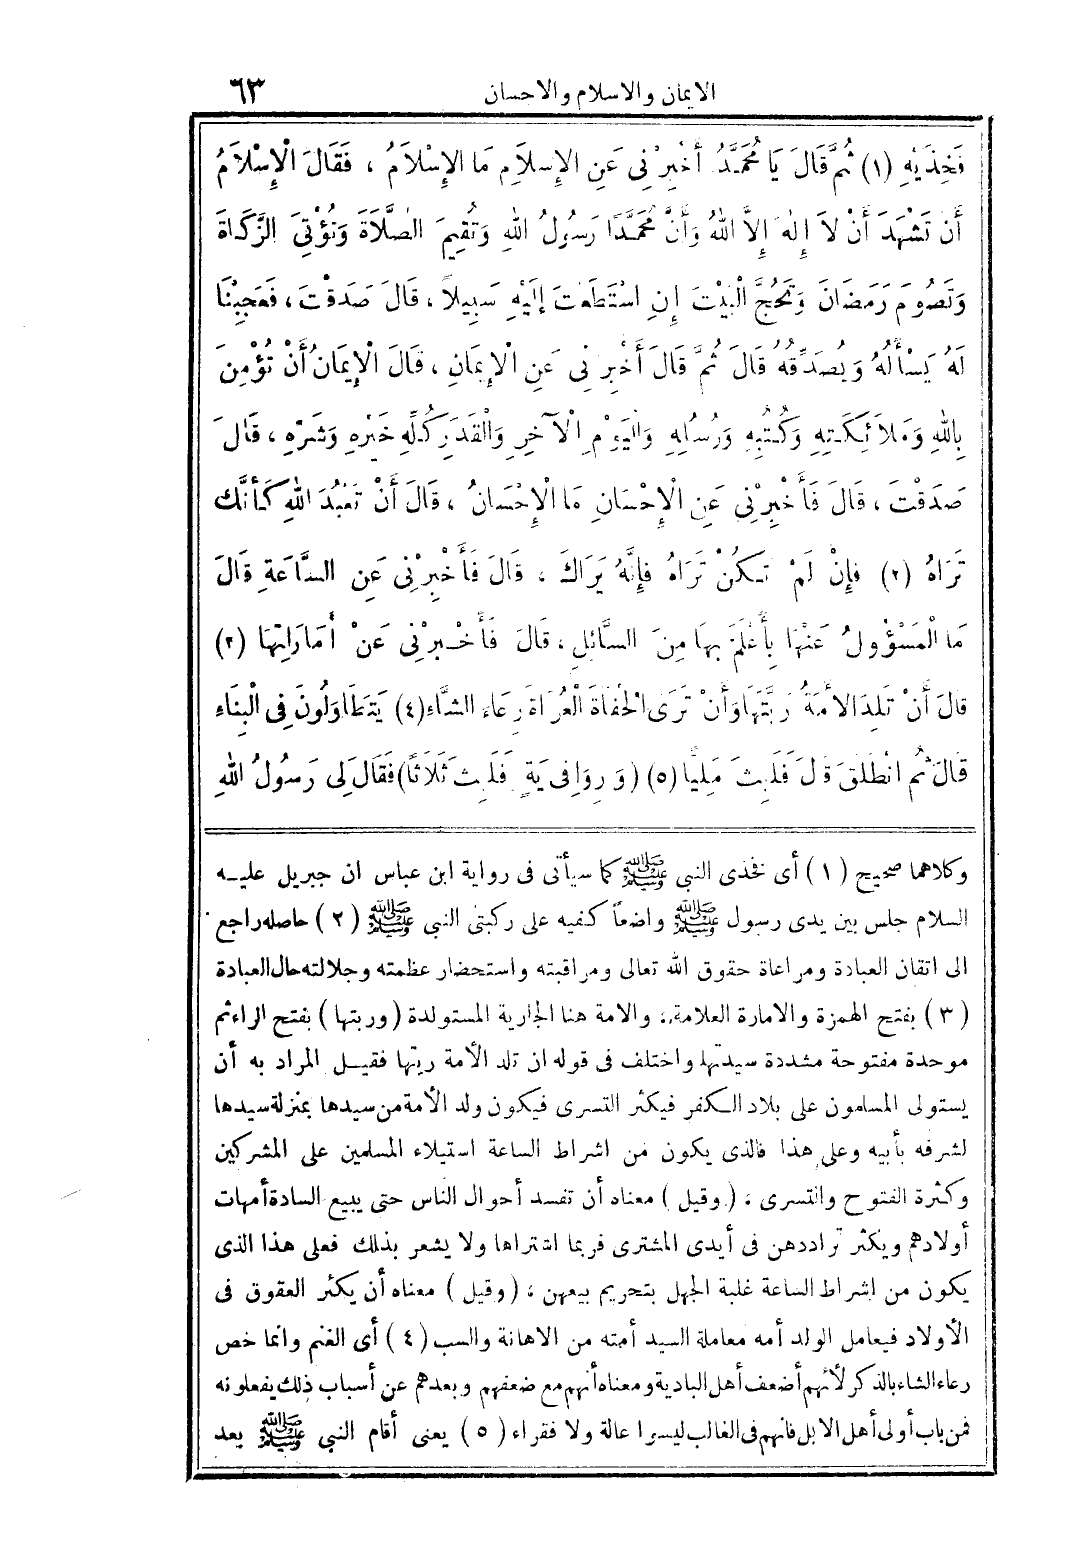 الايمان والاسلام والاحسان ٦٣
فَخِذَيْهِ (١) ثُمَّ قَالَ يَا مُحَمَّدُ أَخْبِرْنِى عَنِ الإِسْلاَمِ مَا الإِسْلاَمُ ، فَقَالَ الْإِسْلاَمُ
أَنْ تَشْهَدَ أَنْ لاَ إِلٰهَ إِلاَّ اللهُ وَأَنَّ مُحَمَّدًا رَسُولُ اللهِ وَتُقِيمَ الصَّلاَةَ وَتُؤْتِىَ الزَّكَاةَ
وَتَصُومَ رَمَضَانَ وَتَحُجَّ الْبَيْتَ إِنِ اسْتَطَعْتَ إِلَيْهِ سَبِيلاً ، قَالَ صَدَقْتَ ، فَعَجِبْنَا
لَهُ يَسْأَلُهُ وَيُصَدِّقُهُ قَالَ ثُمَّ قَالَ أَخْبِرْنِى عَنِ الْإِيمَانِ ، قَالَ الْإِيمَانُ أَنْ تُؤْمِنَ
بِاللهِ وَمَلاَئِكَتِهِ وَكُتُبِهِ وَرُسُلِهِ وَالْيَوْمِ الْآخِرِ وَالْقَدَرِ كُلِّهِ خَيْرِهِ وَشَرِّهِ ، قَالَ
صَدَقْتَ ، قَالَ فَأَخْبِرْنِى عَنِ الْإِحْسَانِ مَا الْإِحْسَانُ ، قَالَ أَنْ تَعْبُدَ اللهَ كَأَنَّكَ
تَرَاهُ (٢) فَإِنْ لَمْ تَكُنْ تَرَاهُ فَإِنَّهُ يَرَاكَ ، قَالَ فَأَخْبِرْنِى عَنِ السَّاعَةِ قَالَ
مَا الْمَسْؤُولُ عَنْهَا بِأَعْلَمَ بِهَا مِنَ السَّائِلِ ، قَالَ فَأَخْبِرْنِى عَنْ أَمَارَاتِهَا (٣)
قَالَ أَنْ تَلِدَ الأَمَةُ رَبَّتَهَا وَأَنْ تَرَى الْحُفَاةَ الْعُرَاةَ رِعَاءَ الشَّاءِ (٤) يَتَطَاوَلُونَ فِى الْبِنَاءِ
قَالَ ثُمَّ انْطَلَقَ قَالَ فَلَبِثَ مَلِيًّا (٥) (وَ فِى رِوَايَةٍ فَلَبِثَ ثَلاَثًا) فَقَالَ لِى رَسُولُ اللهِ
وكلاهما صحيح (١) أى فخذى النبى ﷺ كما سيأتى فى رواية ابن عباس ان جبريل عليه
السلام جلس بين يدى رسول ﷺ واضعاً كفيه على ركبتى النبى ﷺ (٢) حاصله راجع
الى اتقان العبادة ومراعاة حقوق الله تعالى ومراقبته واستحضار عظمته وجلالته حال العبادة
(٣) بفتح الهمزة والامارة العلامة ، والامة هنا الجارية المستولدة (وربتها) بفتح الراء ثم
موحدة مفتوحة مشددة سيدتها واختلف فى قوله ان تلد الأمة ربتها فقيل المراد به أن
يستولى المسلمون على بلاد الكفر فيكثر التسرى فيكون ولد الأمة من سيدها بمنزلة سيدها
لشرفه بأبيه وعلى هذا فالذى يكون من اشراط الساعة استيلاء المسلمين على المشركين
وكثرة الفتوح والتسرى ، (وقيل) معناه أن تفسد أحوال الناس حتى يبيع السادة أمهات
أولادهم ويكثر تراددهن فى أيدى المشترى فربما اشتراها ولا يشعر بذلك فعلى هذا الذى
يكون من اشراط الساعة غلبة الجهل بتحريم بيعهن ، (وقيل) معناه أن يكثر العقوق فى
الأولاد فيعامل الولد أمه معاملة السيد أمته من الاهانة والسب (٤) أى الغنم وانما خص
رعاء الشاء بالذكر لأنهم أضعف أهل البادية ومعناه أنهم مع ضعفهم وبعدهم عن أسباب ذلك يفعلونه
فمن باب أولى أهل الابل فانهم فى الغالب ليسرا عالة ولا فقراء (٥) يعنى أقام النبى ﷺ بعد